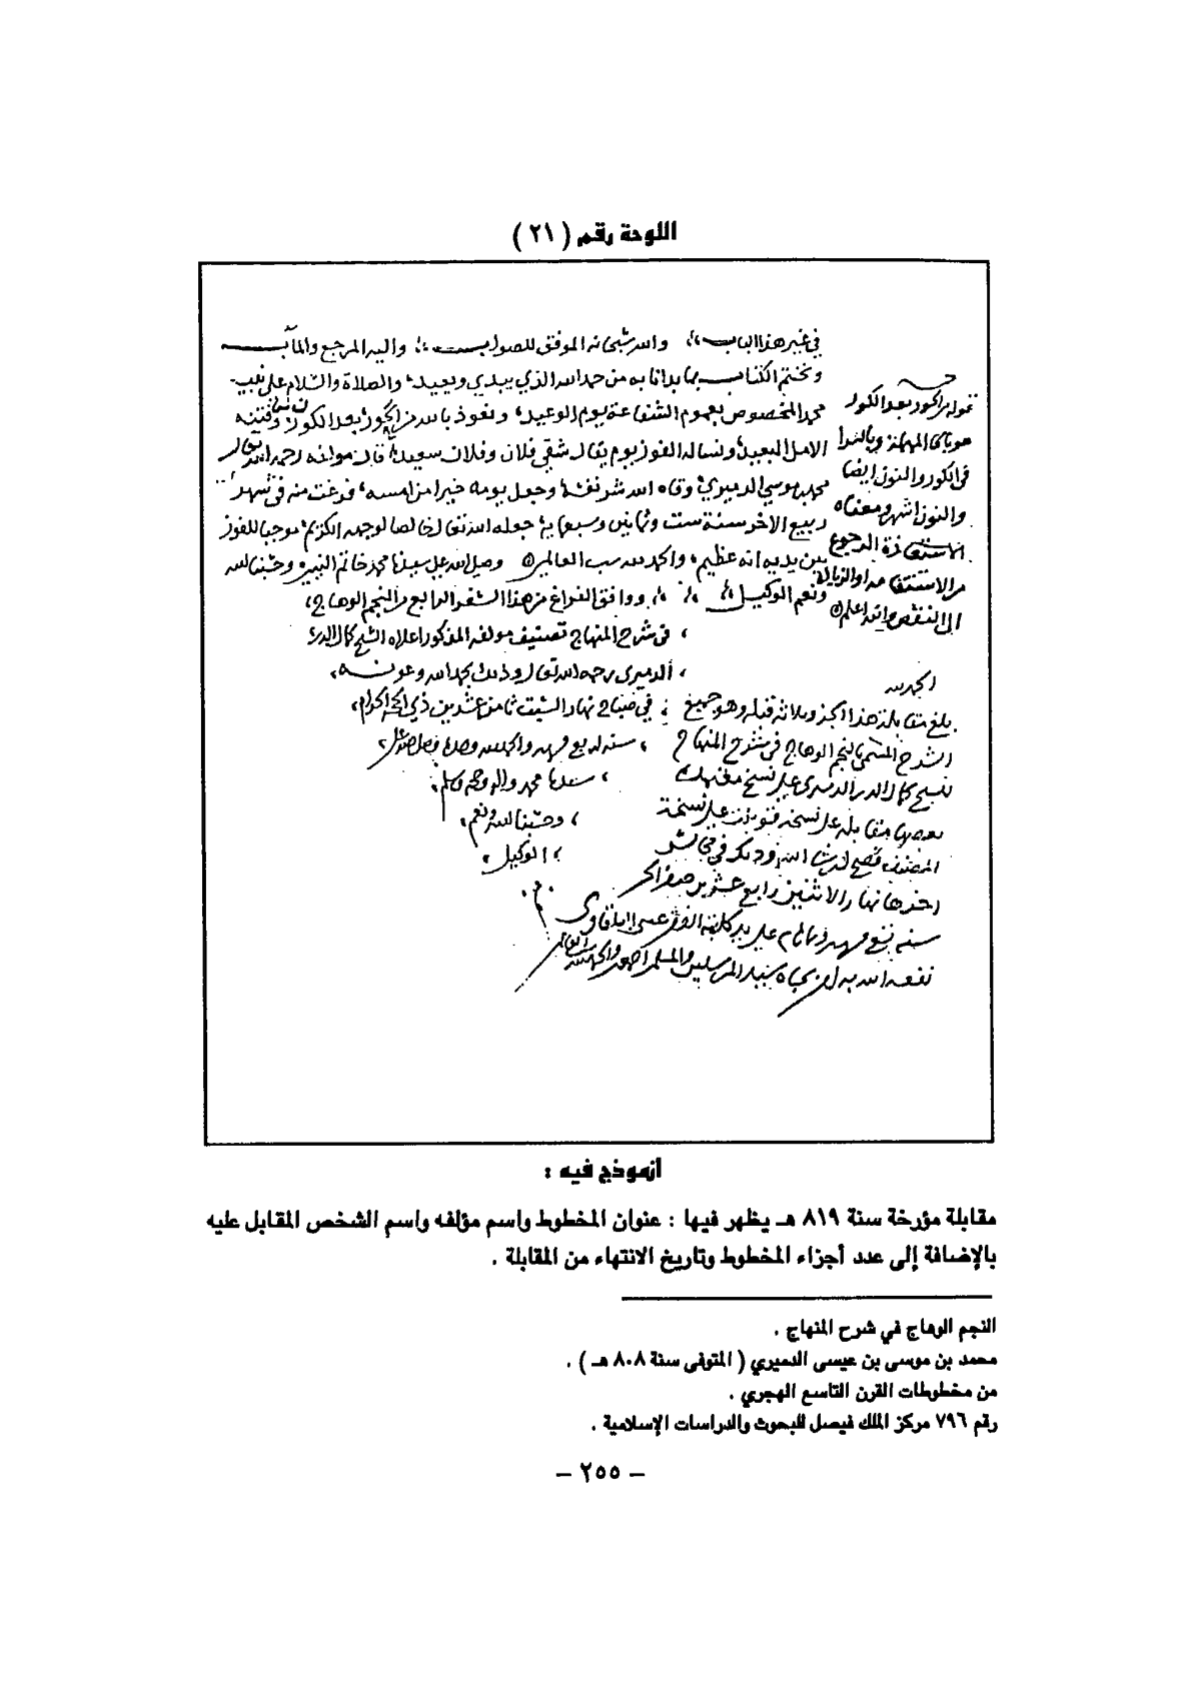 اللوحة رقم ( ٢١ )
في غير هذا الباب والله سبحانه الموفق للصواب واليه المرجع والمآب
ونختم الكتاب بما بدانا به من حمد الله الذي يبدي ويعيد والصلاة والسلام على نبيه
محمد المخصوص بعموم الشفاعة يوم الوعيد ونعوذ بالله من الحور بعد الكور
الامل البعيد ونساله الفوز يوم يقال شقي فلان وفلان سعيد قال مولفه رحمه الله تعالى
محمد بن موسي الدميري وقاه الله شر نفسه وجعل يومه خيرا من امسه فرغت منه في شهر
ربيع الاخر سنة ست وثمانين وسبعماية جعله الله تعالى خالصا لوجهه الكريم موجبا للفوز
بين يديه انه عظيم والحمد لله رب العالمين وصلى الله على سيدنا محمد خاتم النبيين وحسبنا الله
ونعم الوكيل ووافق الفراغ من هذا السفر الرابع من النجم الوهاج
في شرح المنهاج تصنيف مولفه المذكور اعلاه الشيخ كمال الدين
الدميري رحمه الله تعالى وذلك بحمد الله وعونه
في صباح نهار السبت ثامن عشرين ذي الحجة الحرام
سنة اربع
سيدنا محمد واله وصحبه وسلم
وحسبنا الله ونعم
الوكيل
من الحور بعد الكور
هو بالحا المهملة وبالرا
في الكور والنون ايضا
والنون اشهر ومعناه
الاستعاذة الرجوع
من الاستقامة او الزيادة
الى النقص والله اعلم
الحمد لله
بلغ مقابلة هذا الجزو وثلاثة قبله وهو جميع
الشرح المسمى بالنجم الوهاج في شرح المنهاج
للشيخ كمال الدين الدميري على نسخ
بعضها مقابلة على نسخة قوبلت على نسخة
المصنف فصح ان شا الله وذلك في مجالس
اخرها نهار الاثنين رابع عشرين صفر الخير
سنة تسع على يد كاتبه
نفعه الله به امين بجاه سيد المرسلين
أنموذج فيه :
مقابلة مؤرخة سنة ٨١٩ هـ يظهر فيها : عنوان المخطوط واسم مؤلفه واسم الشخص المقابل عليه
بالإضافة إلى عدد أجزاء المخطوط وتاريخ الانتهاء من المقابلة .
النجم الوهاج في شرح المنهاج .
محمد بن موسى بن عيسى الدميري ( المتوفى سنة ٨٠٨ هـ ) .
من مخطوطات القرن التاسع الهجري .
رقم ٧٩٦ مركز الملك فيصل للبحوث والدراسات الإسلامية .
– ٢٥٥ –